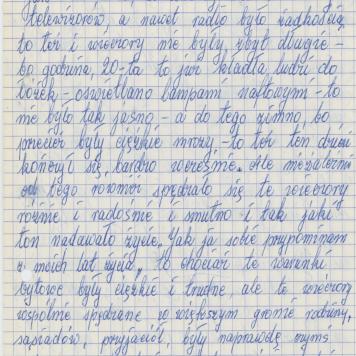 telewizorów, a nawet radjo było rzadkością
to też i wieczory nie były zbyt długie -
bo godzina, 20-ta to już kładła ludzi do
łóżek - oświetlano lampami naftowymi - to
nie było tak jasno - a do tego zimno, bo
przecież były ciężkie mrozy - to też ten dzień
kończył się bardzo wcześnie. Ale niezależnie
od tego rozmów spędzało się te wieczory
różnie i radośnie i smutno i tak jaki
ton nadawało życie. Jak ja sobie przypominam
z moich lat życia, to chociaż te warunki
bytowe były ciężkie i trudne, ale te wieczory
wspólnie spędzane w większym gronie rodziny,
sąsiadów, przyjaciół, były naprawdę czymś